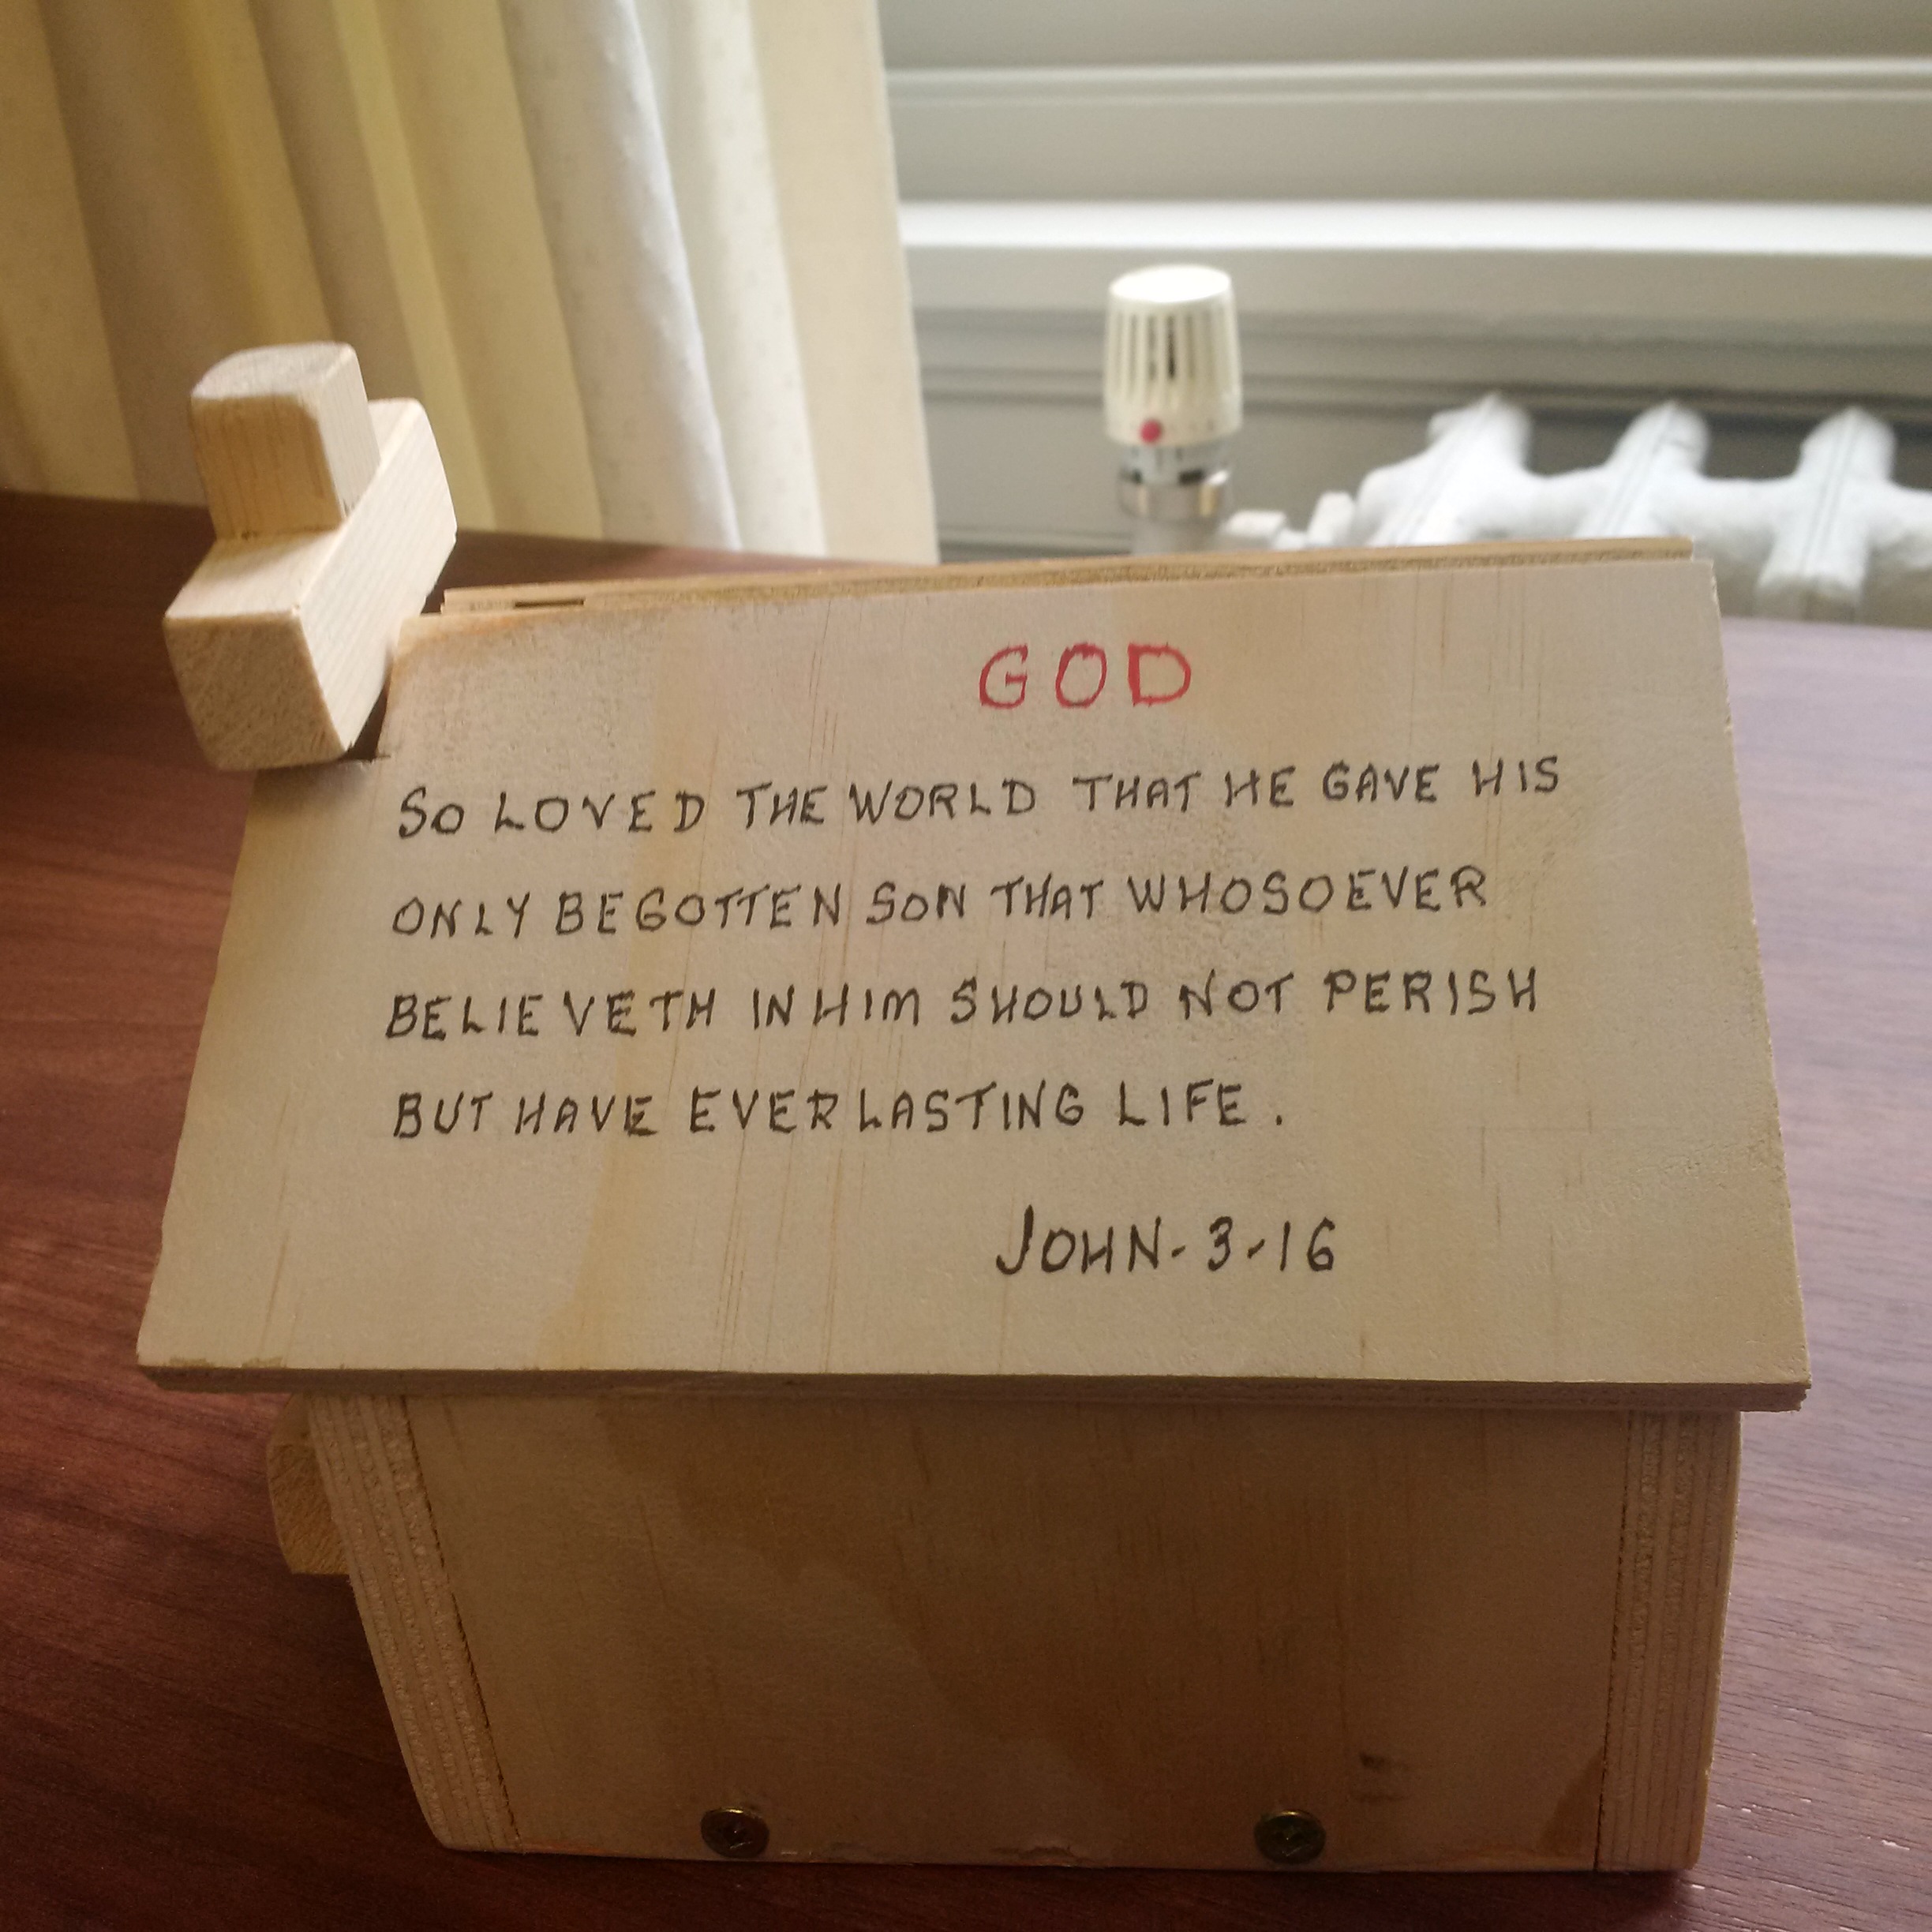 GOD
SO LOVED THE WORLD THAT HE GAVE HIS
ONLY BEGOTTEN SON THAT WHOSOEVER
BELIEVETH IN HIM SHOULD NOT PERISH
BUT HAVE EVERLASTING LIFE.
JOHN-3-16